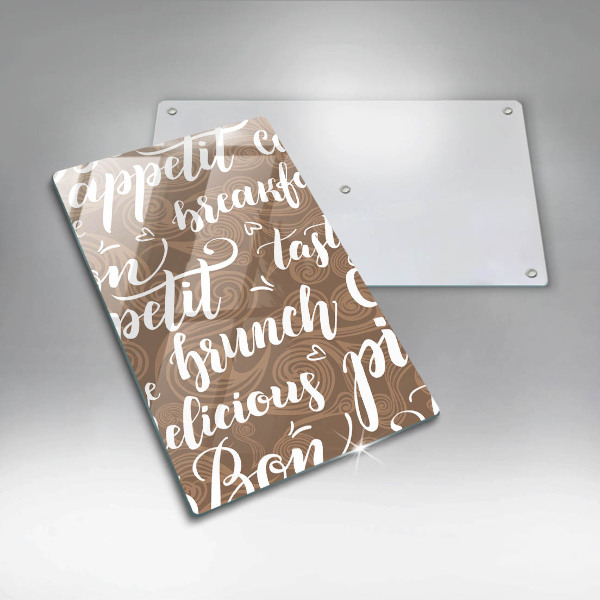 appetit
breakfa
on tast
petit
brunch
pi
elicious
Bon